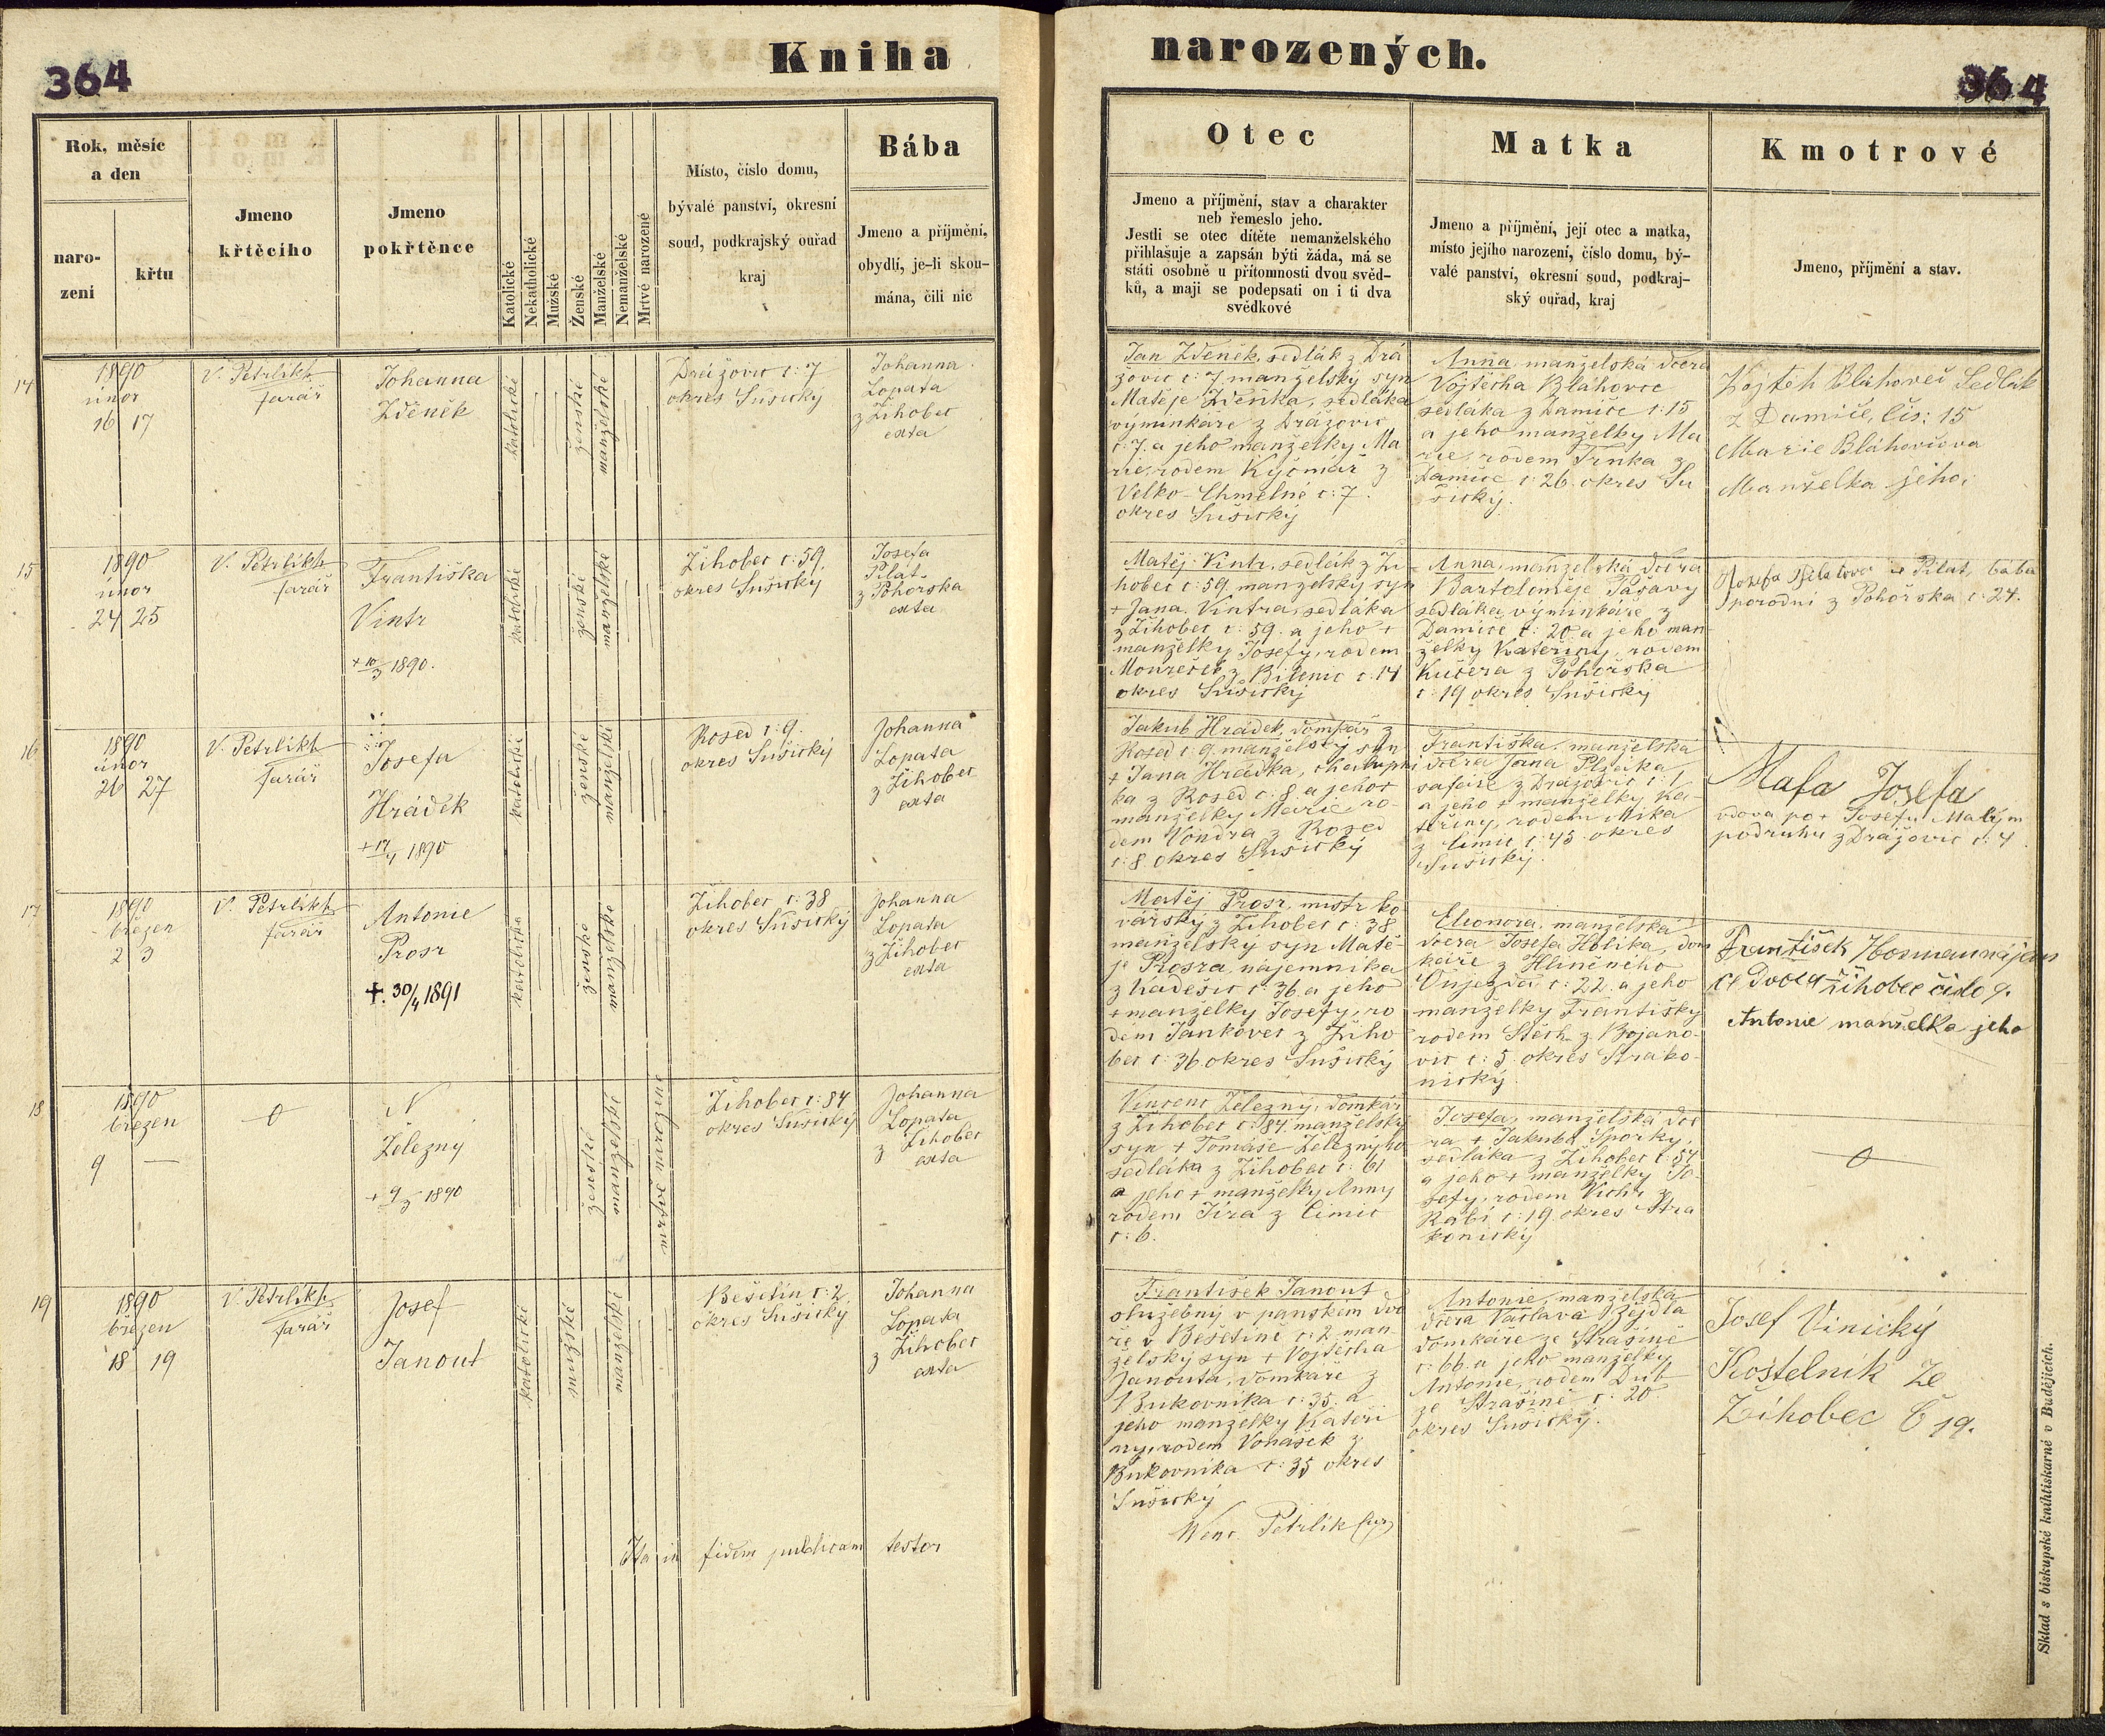 364
Kniha
narozených.
364
Rok, měsíc
a den
naro-
zení
křtu
Jmeno
křtěcího
Jmeno
pokřtěnce
Katolické
Nekatholické
Mužské
Ženské
Manželské
Nemanželské
Mrtvé narozené
Místo, číslo domu,
bývalé panství, okresní
soud, podkrajský ouřad
kraj
Bába
Jmeno a příjmění,
obydlí, je-li skou-
mána, čili nic
Otec
Jmeno a příjmění, stav a charakter
neb řemeslo jeho.
Jestli se otec dítěte nemanželského
přihlašuje a zapsán býti žáda, má se
státi osobně u přítomnosti dvou svěd-
ků, a mají se podepsati on i ti dva
svědkové
Matka
Jmeno a příjmění, její otec a matka,
místo jejího narození, číslo domu, bý-
valé panství, okresní soud, podkraj-
ský ouřad, kraj
Kmotrové
Jmeno, příjmění a stav.
14
1890
únor
16 17
V. Petrlikh
farář
Johanna
Zděněk
katolické
ženské
manželské
Drážovic č: 7
okres Sušický
Johanna
Lopata
z Žihobec
exta
Jan Zděněk, sedlák z Drá
žovic č: 7 manželský syn
Matěje Zděnka, sedláka
výminkáře z Drážovic
č: 7. a jeho manželky Ma
rie, rodem Kyčmář z
Velko-Chmelné č: 7.
okres Sušický
Anna manželská dcera
Vojtěcha Bláhovce
sedláka z Damíče č: 15
a jeho manželky Ma
rie, rodem Trnka z
Damíče č: 26. okres Su
šický.
Vojtěh Bláhoveč Sedlák
z Damíče, čis: 15
Marie Bláhovčova
Manželka jeho
15
1890
únor
24 25
V. Petrlikh
farář
Františka
Vintr
+ 10/3 1890.
katolické
ženské
manželské
Žihobec č: 59.
okres Sušický
Josefa
Pilat
z Pohorska
exta
Matěj Vintr, sedlák z Ži
hobec č: 59, manželský syn
+ Jana Vintra, sedláka
z Žihobec č: 59. a jeho +
manželky Josefy, rodem
Moureček z Bilenic č: 14
okres Sušický
Anna, manželská dcera
Bartoloměje Pašavy
sedláka, výminkáře z
Damíče č: 20. a jeho man
želky Kateřiny, rodem
Kučera z Pohorska
č: 19 okres Sušický
Josefa Pilatova Pilat, bába
porodní z Pohorska č: 24.
16
1890
únor
26 27
V. Petrlikh
farář
Josefa
Hrádek
+ 17/4 1890
katolické
ženské
manželské
Rosed č: 9.
okres Sušický
Johanna
Lopata
z Žihobec
exta
Jakub Hrádek, domkář z
Rosed č: 9. manželský syn
+ Jana Hrádka, chalupní
ka z Rosed č: 8. a jeho +
manželky Marie, ro-
dem Vondra z Rosed
č: 8. okres Sušický
Františka, manželská
dcera Jana
šafáře z Drážovic č: 1.
a jeho + manželky Ka-
teřiny, rodem Mika
z Čimic č: 45 okres
Sušický.
Mafa Josefa
vdova po + Josefu
podruhu z Drážovic č: 4.
17
1890
březen
2 3
V. Petrlikh
farář
Antonie
Prosr
+. 30/4 1891
katolické
ženské
manželské
Žihobec č: 38
okres Sušický
Johanna
Lopata
z Žihobec
exta
Matěj Prosr, mistr ko
vářský z Žihobec č: 38
manželský syn Matě-
je Prosra, nájemníka
z Kadešic č: 36. a jeho
+ manželky Josefy, ro
dem Jankovec z Žiho
bec č: 36. okres Sušický
Eleonora, manželská
dcera Josefa Holíka, dom
káře z Hliněného
Oujezda č: 22. a jeho
manželky Františky
rodem Štěch z Bojano-
vic č: 5. okres Strako
nický.
František Hosman
Dvora Žihobec čislo 9.
Antonie manželka jeho
18
1890
březen
9 —
0
N
Železný
+ 9/3 1890
ženské
manželské
mrtvě narozené
Žihobec č: 84
okres Sušický
Johanna
Lopata
z Žihobec
exta
Vincenc Železný, domkář
z Žihobec č: 84. manželský
syn + Tomáše Železného
sedláka z Žihobec č: 61
a jeho + manželky Anny
rodem Jíra z Čimic
č: 6.
Josefa, manželská dce
ra + Jakuba Sporky,
sedláka z Žihobec č: 54
a jeho + manželky Jo-
sefy, rodem Vichr z
Rabí č: 19. okres Stra
konický
0
19
1890
březen
18 19
V. Petrlikh
farář
Josef
Janout
katolické
mužské
manželské
Bešetín č: 2.
okres Sušický
Johanna
Lopata
z Žihobec
exta
František Janout
služebný v panském dvo
ře v Bešetíně č: 2. man-
želský syn + Vojtěcha
Janouta, domkáře z
Bukovníka č: 35. a
jeho manželky Kateři
ny, rodem Vonášek z
Bukovníka č: 35 okres
Sušický
Antonie, manželská
dcera Václava Zejdla
domkáře ze Strašíně
č: 66. a jeho manželky
Antonie, rodem Dub
ze Strašíně č: 20
okres Sušický.
Josef Vinický
Kostelník Ze
Žihobec Č 19.
Ita in fidem publicam testor
Wenc. Petrlik
Sklad s biskupské knihtiskárně v Budějicích.